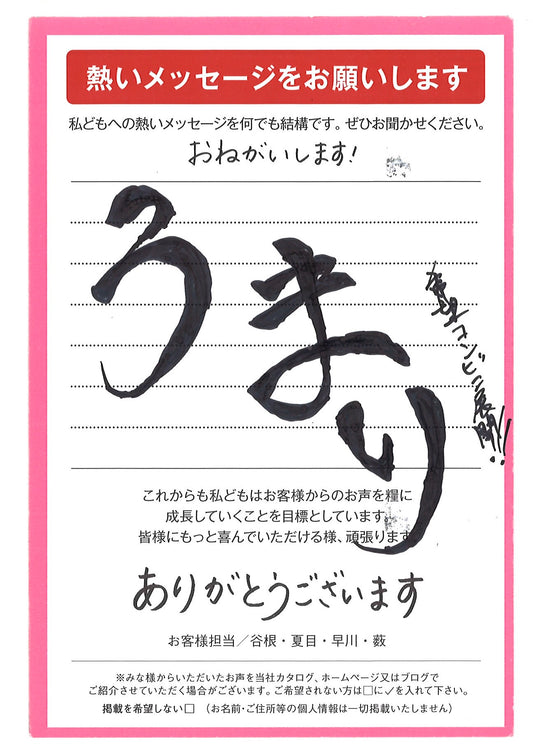 熱いメッセージをお願いします
私どもへの熱いメッセージを何でも結構です。ぜひお聞かせください。
おねがいします!
うまり
希望コンビニ展開!!
これからも私どもはお客様からのお声を糧に
成長していくことを目標としています。
皆様にもっと喜んでいただける様、頑張ります。
ありがとうございます
お客様担当/谷根・夏目・早川・薮
※みな様からいただいたお声を当社カタログ、ホームページ又はブログで
ご紹介させていただく場合がございます。ご希望されない方は□に✓を入れて下さい。
掲載を希望しない□ (お名前・ご住所等の個人情報は一切掲載いたしません)